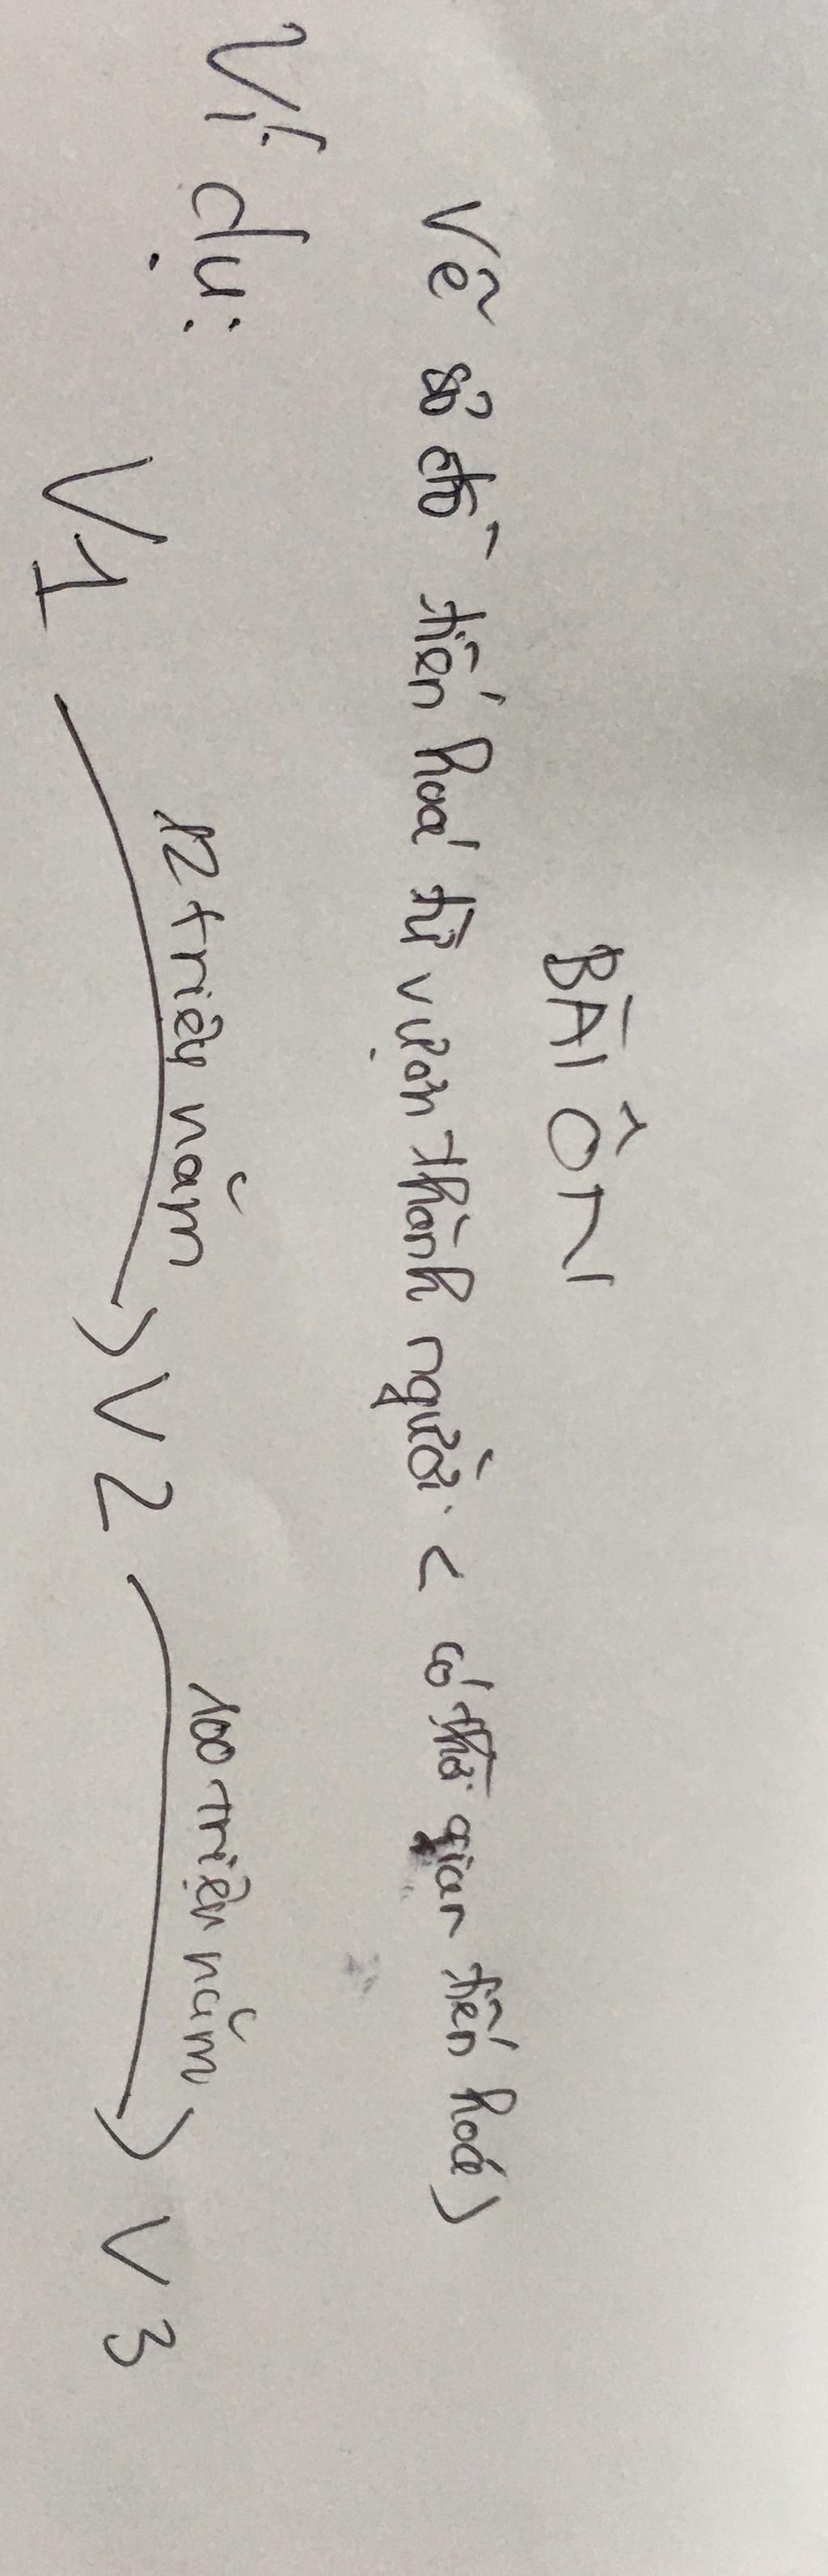 BÀI ÔN
Vẽ sơ đồ tiến hoá từ vượn thành người. ( có thời gian tiến hoá)
Ví dụ:
12 triệu năm 100 triệu năm
V1 → V2 → V3